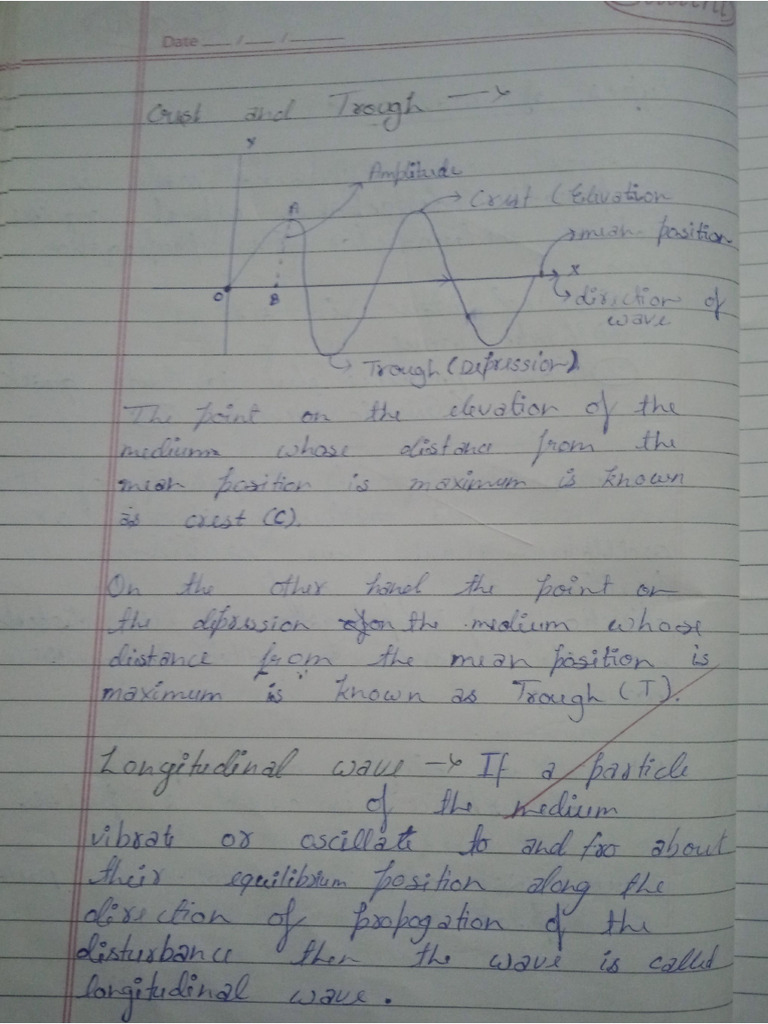 Date __/__/____
Crest and Trough →
Y
Amplitude
A
Crest (Elevation
mean position
X
O
B
direction of
wave
Trough (Depression)
The point on the elevation of the
medium whose distance from the
mean position is maximum is known
as crest (C).
On the other hand the point on
the depression on the medium whose
distance from the mean position is
maximum is known as Trough (T).
Longitudinal wave → If a particle
of the medium
vibrate or oscillate to and fro about
their equilibrium position along the
direction of propogation of the
disturbance then the wave is called
longitudinal wave.